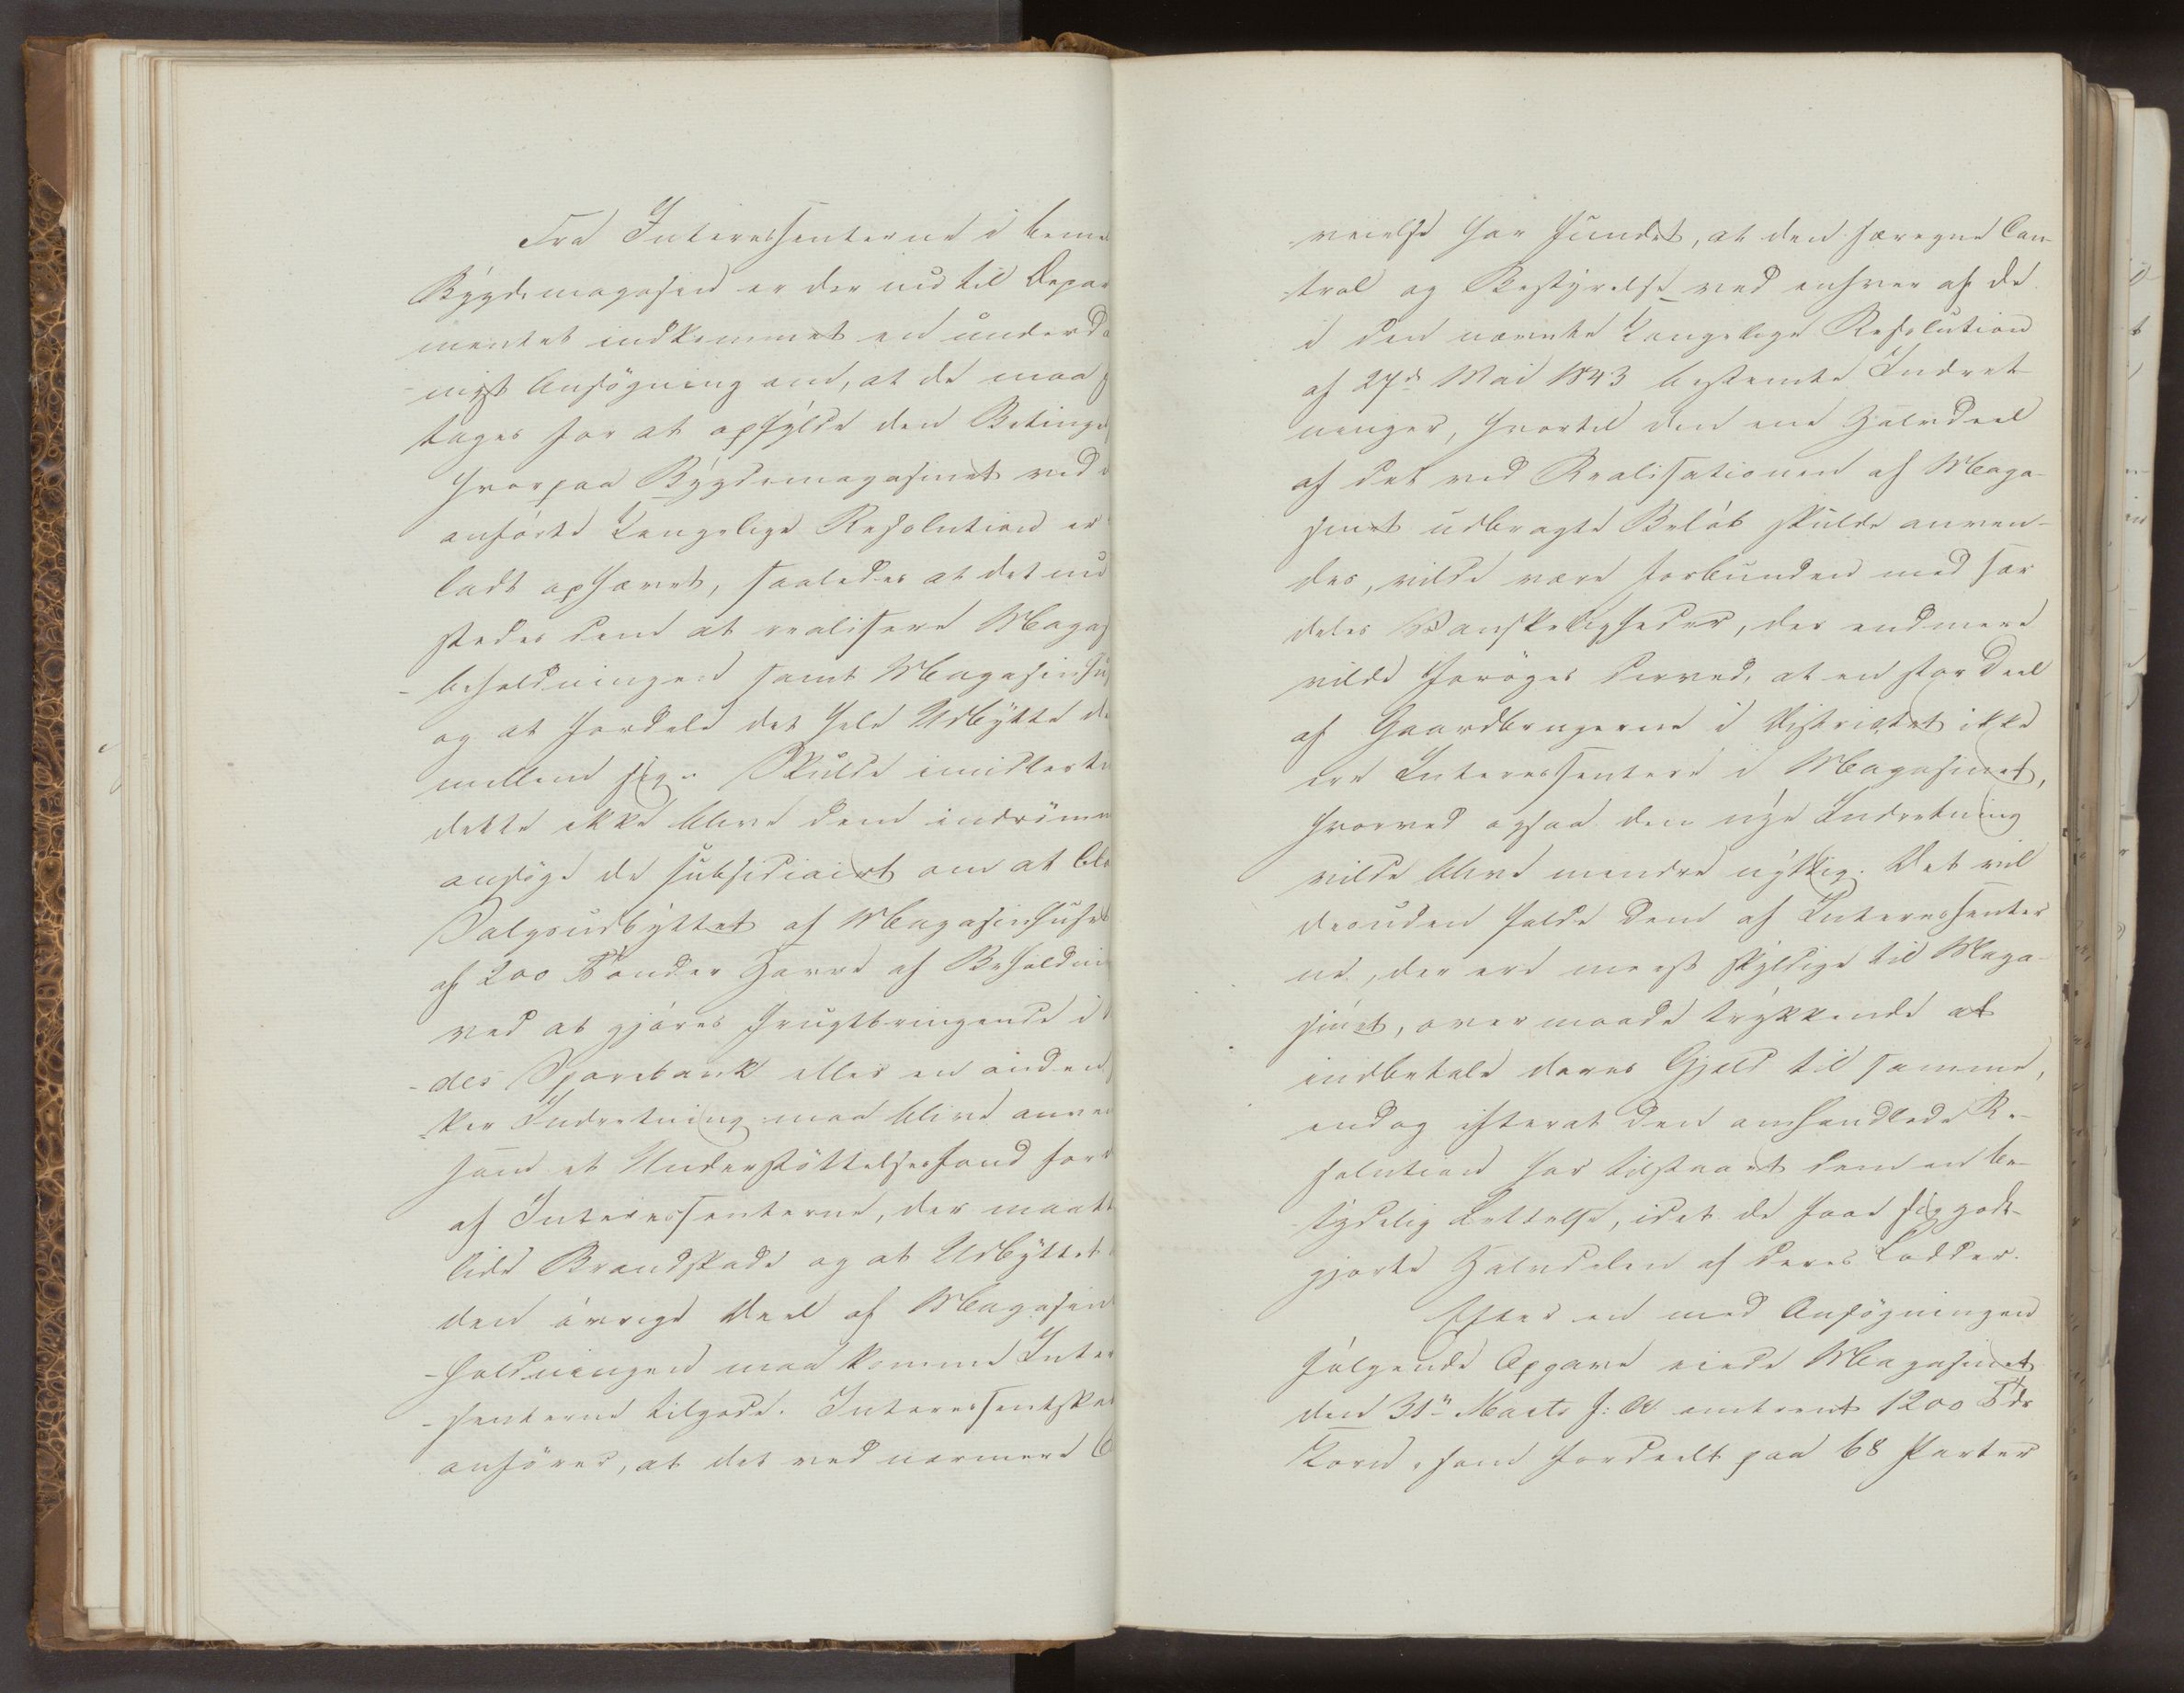 Fra Interessenterne i beme
Bÿgdemagasin er der nu til Depar
mentet indkommet en underda
nigst Ansögning om, at de maa f
tages for at opfÿlde den Betinge
hvorpaa Bÿgdemagasinet ved d
anförte Kongelige Resolution er
ladt ophævet, saaledes at det mu
stedes dem at realisere Magas
-beholdningen samt Magasinhu
og at fordele det hele Udbÿtte de
mellem sig. Skulde imidlerti
dette ikke blive dem indrömm
ansöge de subsidiairt om at
Salgsudbÿttet af Magasinhuset
af 200 Tönder Havre af Beholdni
ved at gjöres frugtbringende i
-des Sparebank eller en anden
-ker Indretning maa blive anven
som et Understöttelsesfond for
af Interessenterne, der maatt
lide Brandskade og at Udbÿttet
den övrige Deel af Magasin
-holdningen maa komme Inter
-senterne tilgode. Interessentska
anförer, at det ved nærmere O
-veielse har fundet, at den særegne Con-
-trol og Bestÿrelse ved enhver af de
i den nævnte Kongelige Resolution
af 27de Mai 1843 bestemte Indret-
ninger, hvortil den ene Halvdeel
af det ved Realisationen af Maga-
sinet udbragte Belöb skulde anven-
des, vilde være forbunden med sær
deles Vanskeligheder, der endmere
vilde foröges derved, at en stor Deel
af Gaardbrugerne i Districtet ikke
ere Interessentere i Magasinet,
hvorved ogsaa den nÿe Indretning
vilde blive mindre nÿttig. Det vil
desuden falde dem af Interessenter
ne, der ere meest skÿldige til Maga-
sinet, overmaade trÿkkende at
indbetale deres Gjeld til samme,
endog efterat den omhandlede Re-
solution har tilstaaet dem en be-
tÿdelig Lettelse, idet de faae sig godt-
gjorte Halvdelen af deres Lodder.
Efter en med Ansögningen
fölgende Opgave eiede Magasinet
den 31te Marts f: A: omtrent 1200 Tdr
Korn, som fordeelt paa 68 Parter